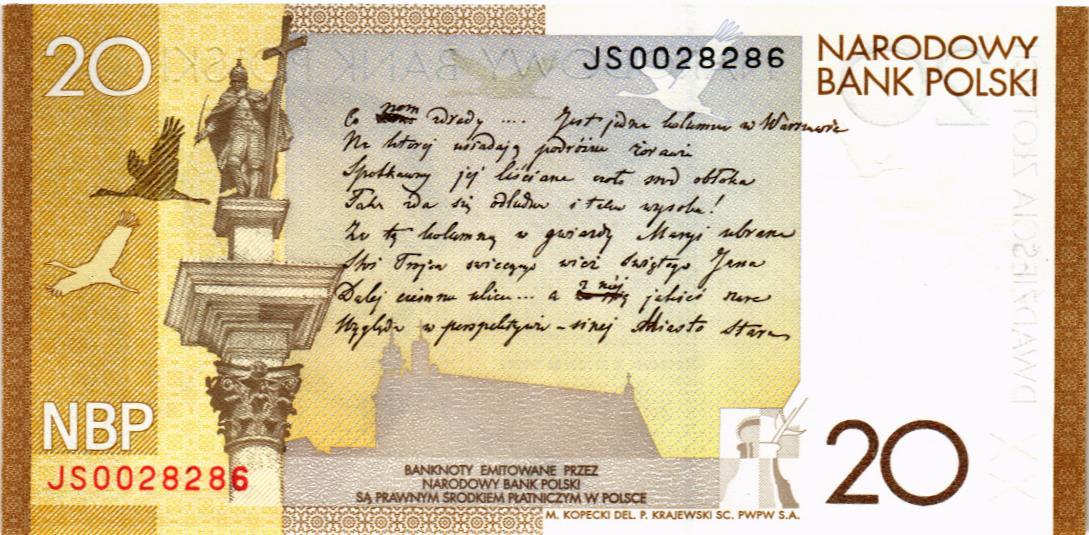 20
JS0028286
NARODOWY
BANK POLSKI
Co nam zdrady .... Jest jedna kolumna w Warszawie
Na ktorej usiadają podróżne żorawie
Spotkawszy jej liściane czoło śród obłoka
Taka zda się odludna i taka wysoka!
Za tą kolumną w gwiazdy Maryi ubrana
Stoi Trojca swiecących wież świętego Jana
Dalej ciemna ulica... a z niej jakieś szare
Wygląda w perspektywie - sinej Miasto stare
NBP
JS0028286
BANKNOTY EMITOWANE PRZEZ
NARODOWY BANK POLSKI
SĄ PRAWNYM ŚRODKIEM PŁATNICZYM W POLSCE
20
M. KOPECKI DEL. P. KRAJEWSKI SC. PWPW S.A.